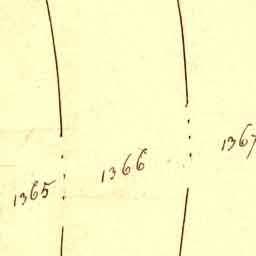 1365 1366 1367